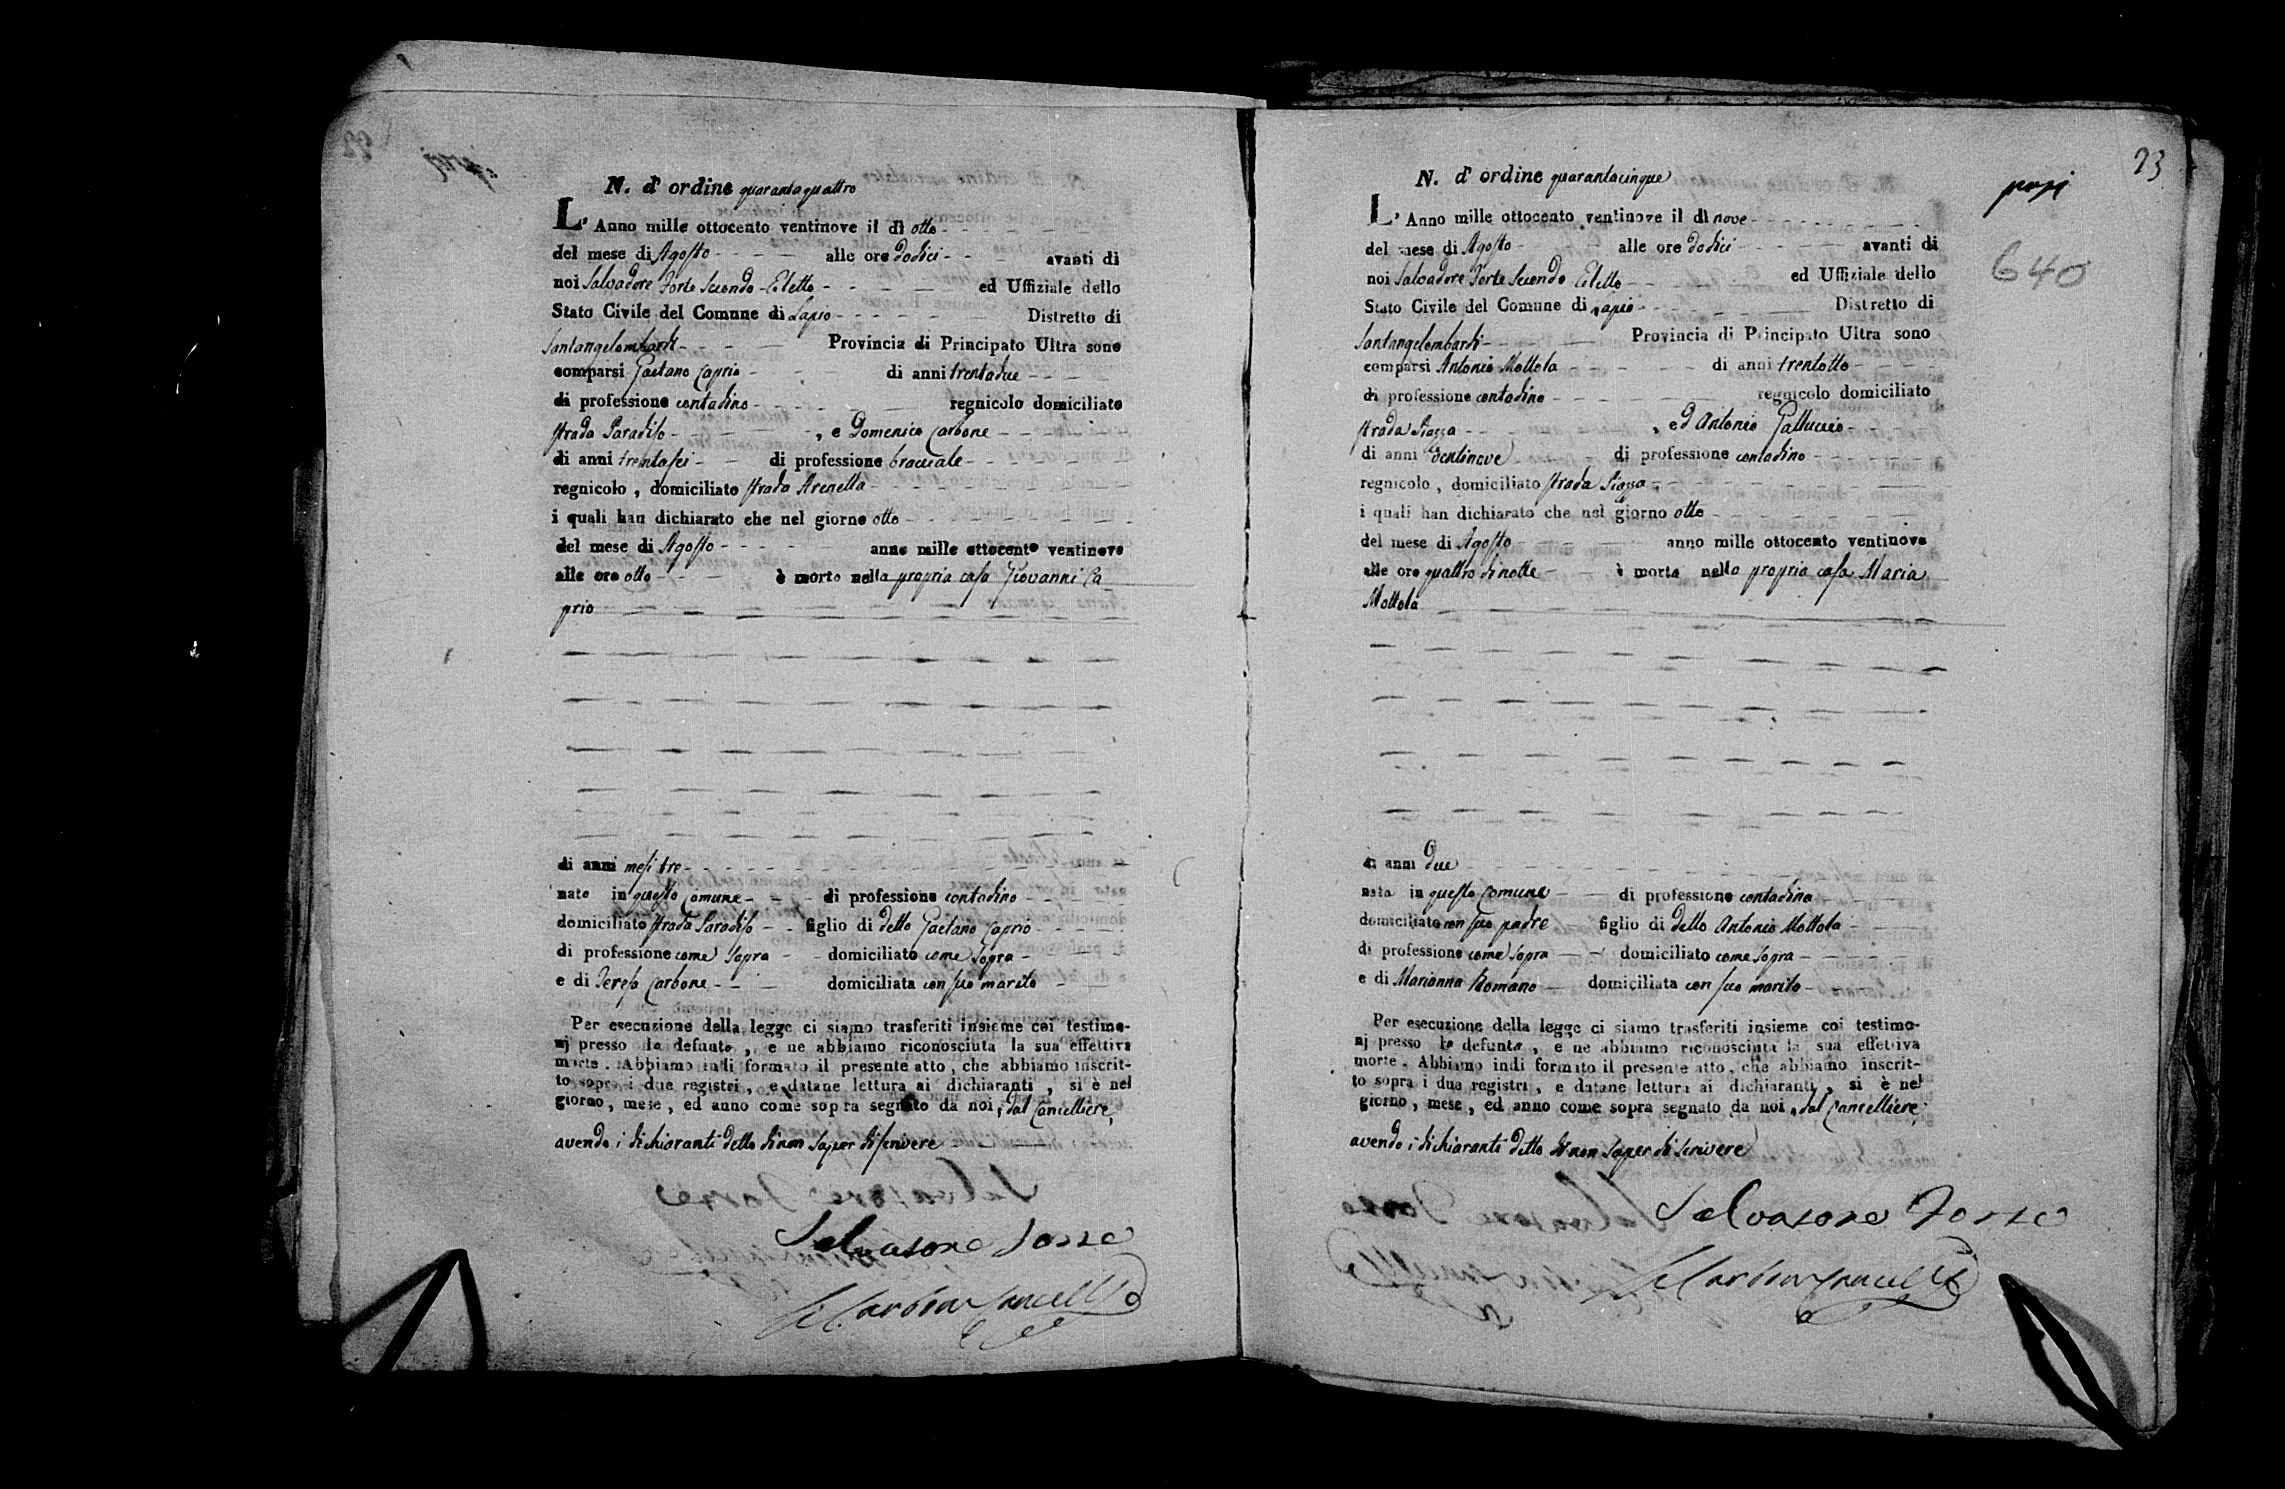 N. d'ordine quarantaquattro
L'Anno mille ottocento ventinove il dì otto
del mese di Agosto alle ore dodici avanti di
noi Salvadore Forte Secondo Eletto ed Uffiziale dello
Stato Civile del Comune di Lapio Distretto di
Santangelombardi Provincia di Principato Ultra sono
comparsi Gaetano Caprio di anni trentadue
di professione contadino regnicolo domiciliato
strada Paradiso , e Domenico Carbone
di anni trentasei di professione bracciale
regnicolo , domiciliato strada Arenella
i quali han dichiarato che nel giorno otto
del mese di Agosto anno mille ottocento ventinove
alle ore otto è morto nella propria casa Giovanni Ca
prio
di anni mesi tre
nato in questo Comune di professione contadino
domiciliato strada Paradiso figlio di detto Gaetano Caprio
di professione come sopra domiciliato come sopra
e di Teresa Carbone domiciliata con suo marito
Per esecuzione della legge ci siamo trasferiti insieme coi testimo-
nj presso lo defunto , e ne abbiamo riconosciuta la sua effettiva
morte . Abbiamo indi formato il presente atto , che abbiamo inscrit-
to sopra i due registri , e datane lettura ai dichiaranti , si è nel
giorno , mese , ed anno come sopra segnato da noi, dal Cancelliere,
avendo i dichiaranti detto di non saper di scrivere
Salvatore Forte
23
pugi
640
N. d'ordine quarantacinque
L'Anno mille ottocento ventinove il dì nove
del mese di Agosto alle ore dodici avanti di
noi Salvadore Forte Secondo Eletto ed Uffiziale dello
Stato Civile del Comune di Lapio Distretto di
Santangelombardi Provincia di Principato Ultra sono
comparsi Antonio Mottola di anni trentotto
di professione contadino regnicolo domiciliato
strada Piazza , ed Antonio Galluccio
di anni ventinove di professione contadino
regnicolo , domiciliato strada Piazza
i quali han dichiarato che nel giorno otto
del mese di Agosto anno mille ottocento ventinove
alle ore quattro di notte è morta nella propria casa Maria
Mottola
di anni due
nata in questo Comune di professione contadina
domiciliato con suo padre figlio di detto Antonio Mottola
di professione come sopra domiciliato come sopra
e di Marianna Romano domiciliata con suo marito
Per esecuzione della legge ci siamo trasferiti insieme coi testimo-
nj presso la defunta , e ne abbiamo riconosciuta la sua effettiva
morte . Abbiamo indi formato il presente atto , che abbiamo inscrit-
to sopra i due registri , e datane lettura ai dichiaranti , si è nel
giorno , mese , ed anno come sopra segnato da noi , dal Cancelliere,
avendo i dichiaranti detto di non saper di scrivere
Salvatore Forte